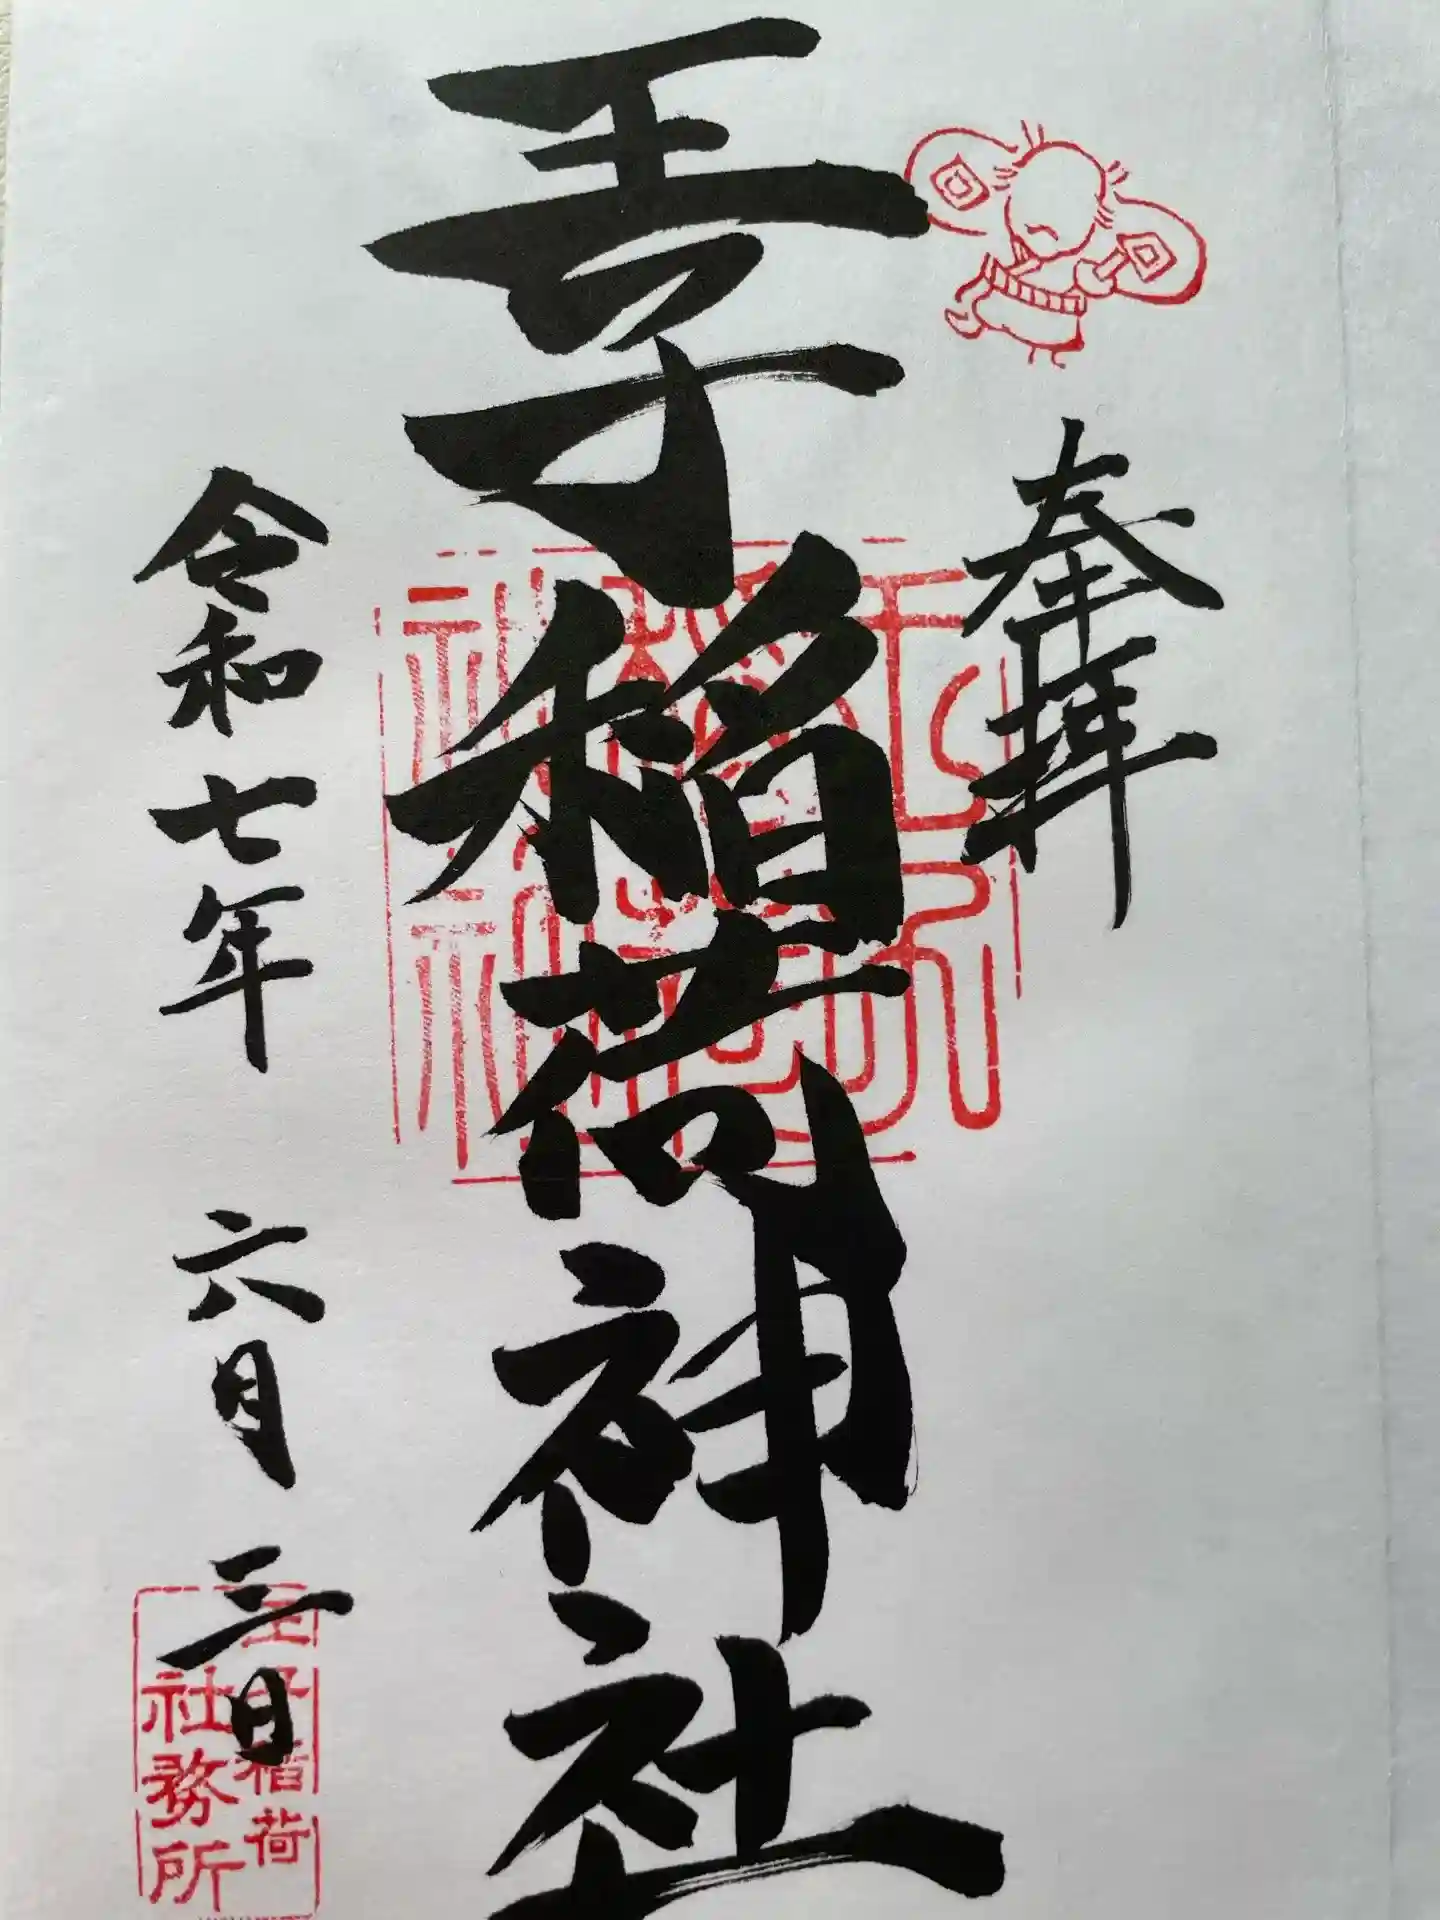 奉拝
王子稲荷神社
令和七年 六月 三日
王子稲荷
社務所